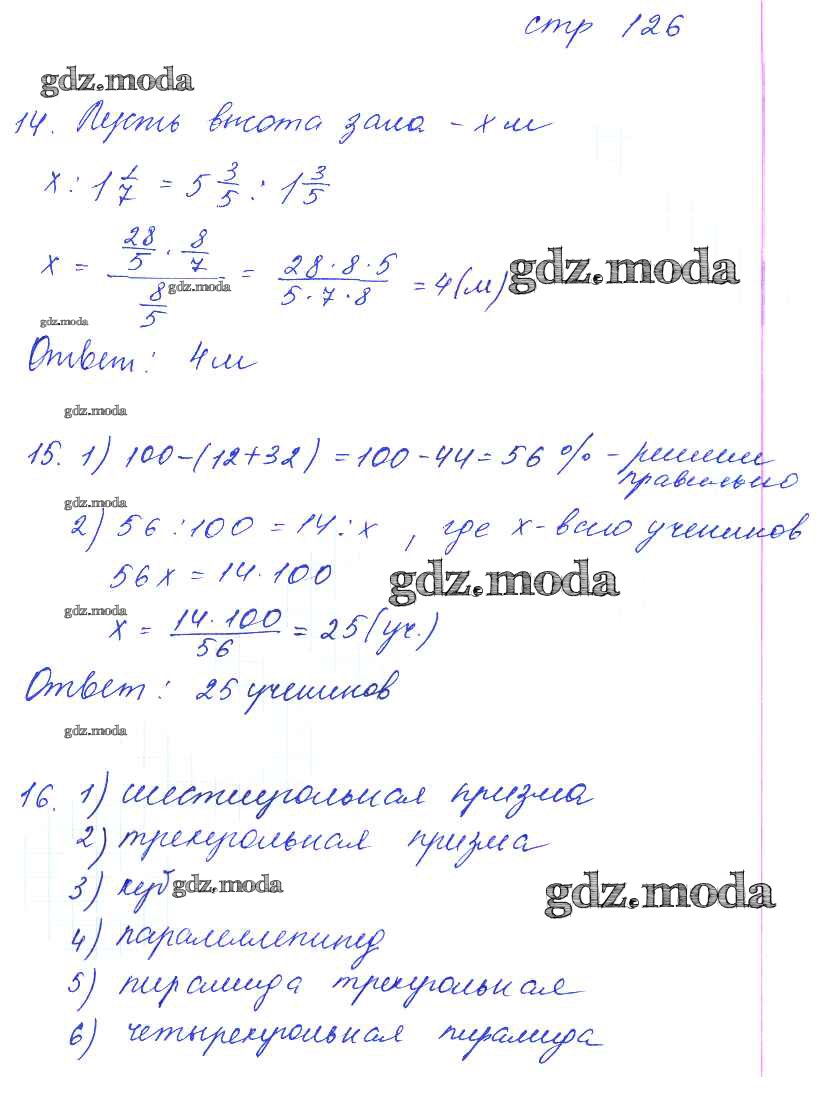 стр 126
gdz.moda
14. Пусть высота зала - x м
x : 1 1/7 = 5 3/5 : 1 3/5
x = (28/5 · 8/7) / (8/5) = (28·8·5)/(5·7·8) = 4(м)
gdz.moda
gdz.moda
gdz.moda
Ответ: 4м
gdz.moda
15. 1) 100-(12+32) = 100-44 = 56 % - решили
правильно
gdz.moda
2) 56 : 100 = 14 : x , где x - всего учеников
56x = 14·100
gdz.moda
gdz.moda
x = (14·100)/56 = 25(уч.)
Ответ: 25 учеников
gdz.moda
16. 1) шестиугольная призма
2) треугольная призма
3) куб
gdz.moda
gdz.moda
4) паралеллепипед
5) пирамида треугольная
6) четырехугольная пирамида